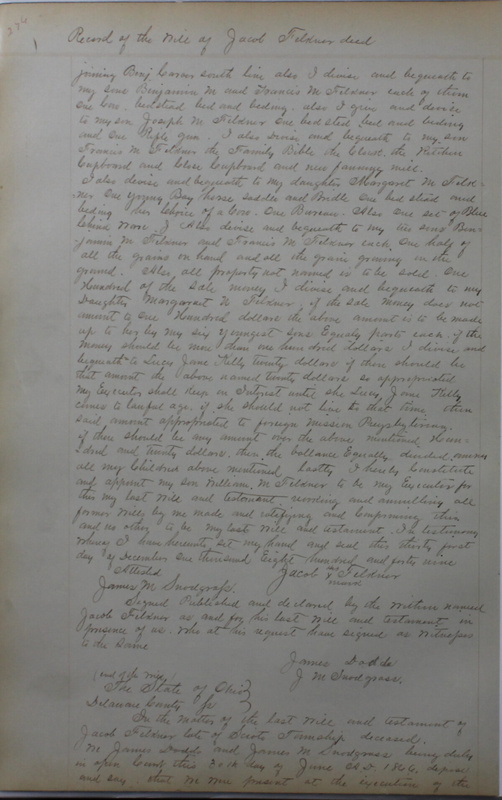 334
Record of the Will of Jacob Feldner decd
joining Benj Carns south line also I divise and bequeath to
my sons Benjamin M and Francis M Feldner each of them
one Cow. bedstead bed and beding. also I give and devise
to my son Joseph M Feldner One bed sted bed and beding
and One Rifle Gun. I also Divise and bequeath to my son
Francis M Feldner the Family Bible the Clock, the Kitchen
Cupboard and Close Cupboard and new fanning mill.
I also divise and bequeath to my daughter Margaret M Feld-
ner One young Bay horse saddle and bridle One bed stead and
beding her choice of a Cow. One Bureau. Also One set of Blue
Ware. I Also divise and bequeath to my two sons Ben-
jamin M Feldner and Francis M Feldner each One half of
all the grains on hand and all the grains growing in the
ground. Also, all property not named is to be sold. One
Hundred of the Sale money I divise and bequeath to my
Daughter Margaret M Feldner, if the sale money does not
amount to One Hundred dollars the above amount is to be made
up to her by my six youngest sons Equally parts each. if the
money should be more than one hundred dollars I divise and
bequeath to Lucy Jane Kelly twenty dollars if there should be
that amount the above named twenty dollars so appropriated
my Executor shall keep on Interest until she Lucy Jane Kelly
comes to lawful age, if she should not live to that time then
said amount appropriated to foreign Mission Presbyterian.
if there should be any amount over the above mentioned Hun-
dred and twenty dollars. then the ballance Equally divided among
all my Children above mentioned lastly I hereby Constitute
and appoint my son William M Feldner to be my Executor for
this my last will and testament revoking and annulling all
former wills by me made and ratifying and Confirming this
and no other to be my last will and testament. In testimony
whereof I have hereunto set my hand and seal this thirty first
day of December One thousand Eight hundred and forty nine
Attested Jacob his X mark Feldner
James M Snodgrass.
Signed Published and declared by the within named
Jacob Feldner as and for his last will and testament in
presence of us. Who at his request have signed as witnesses
to the same
James Dodds
J M Snodgrass.
(end of the Will)
The State of Ohio }
Delaware County ss }
In the matter of the last Will and testament of
Jacob Feldner late of Scioto Township deceased.
We James Dodds and James M Snodgrass being duly
in open Court this 30th day of June A.D. 1864, depose
and say, that we were present at the execution of the